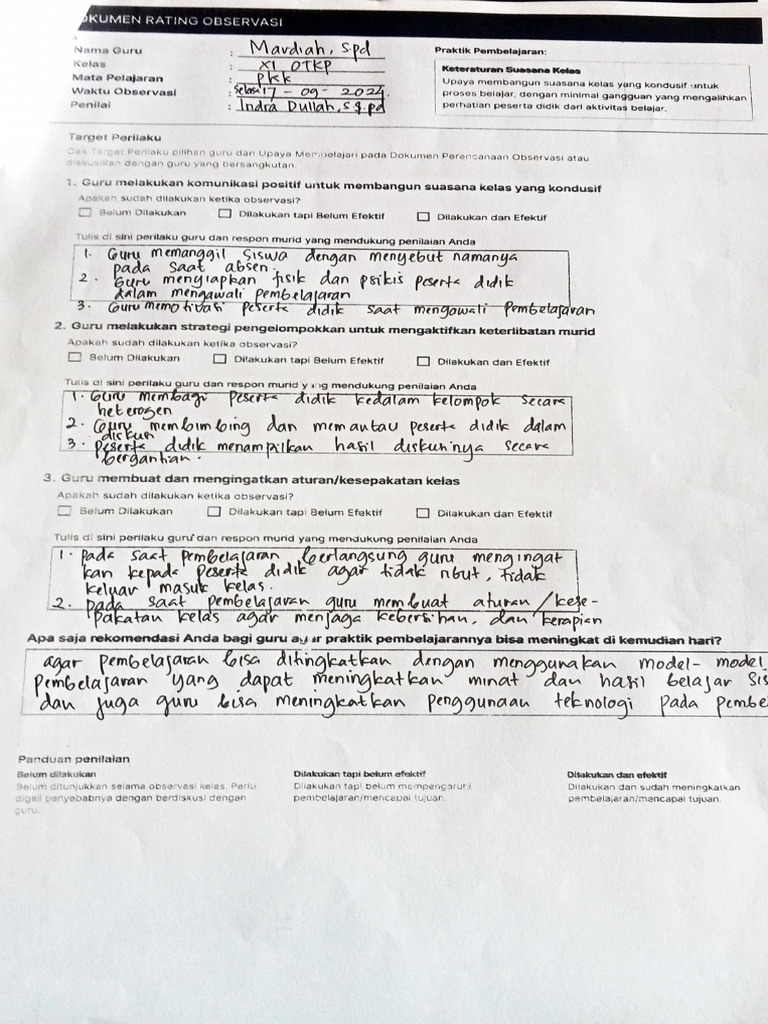 DOKUMEN RATING OBSERVASI
Nama Guru : Mardiah, S.pd
Kelas : XI OTKP
Mata Pelajaran : PKK
Waktu Observasi : Selasa 17 - 09 - 2024
Penilai : Indra Dullah, S.S.pd
Praktik Pembelajaran:
Keteraturan Suasana Kelas
Upaya membangun suasana kelas yang kondusif untuk
proses belajar, dengan minimal gangguan yang mengalihkan
perhatian peserta didik dari aktivitas belajar.
Target Perilaku
Cek Target Perilaku pilihan guru dan Upaya Mempelajari pada Dokumen Perencanaan Observasi atau
diskusikan dengan guru yang bersangkutan.
1. Guru melakukan komunikasi positif untuk membangun suasana kelas yang kondusif
Apakah sudah dilakukan ketika observasi?
Belum Dilakukan Dilakukan tapi Belum Efektif Dilakukan dan Efektif
Tulis di sini perilaku guru dan respon murid yang mendukung penilaian Anda
1. Guru memanggil siswa dengan menyebut namanya
pada saat absen.
2. Guru menyiapkan fisik dan psikis peserta didik
dalam mengawali pembelajaran
3. Guru memotivasi peserta didik saat mengawali pembelajaran
2. Guru melakukan strategi pengelompokkan untuk mengaktifkan keterlibatan murid
Apakah sudah dilakukan ketika observasi?
Belum Dilakukan Dilakukan tapi Belum Efektif Dilakukan dan Efektif
Tulis di sini perilaku guru dan respon murid yang mendukung penilaian Anda
1. Guru membagi peserta didik kedalam kelompok secara
heterogen
2. Guru membimbing dan memantau peserta didik dalam
diskusi
3. Peserta didik menampilkan hasil diskusinya secara
bergantian.
3. Guru membuat dan mengingatkan aturan/kesepakatan kelas
Apakah sudah dilakukan ketika observasi?
Belum Dilakukan Dilakukan tapi Belum Efektif Dilakukan dan Efektif
Tulis di sini perilaku guru dan respon murid yang mendukung penilaian Anda
1. pada saat pembelajaran berlangsung guru mengingat
kan kepada peserta didik agar tidak ribut, tidak
keluar masuk kelas.
2. pada saat pembelajaran guru membuat aturan/kese-
pakatan kelas agar menjaga kebersihan, dan kerapian
Apa saja rekomendasi Anda bagi guru agar praktik pembelajarannya bisa meningkat di kemudian hari?
agar pembelajaran bisa ditingkatkan dengan menggunakan model-model
pembelajaran yang dapat meningkatkan minat dan hasil belajar Sis
dan juga guru bisa meningkatkan penggunaan teknologi pada pembe
Panduan penilaian
Belum dilakukan
Belum ditunjukkan selama observasi kelas. Perlu
digali penyebabnya dengan berdiskusi dengan
guru.
Dilakukan tapi belum efektif
Dilakukan tapi belum mempengaruhi
pembelajaran/mencapai tujuan.
Dilakukan dan efektif
Dilakukan dan sudah meningkatkan
pembelajaran/mencapai tujuan.